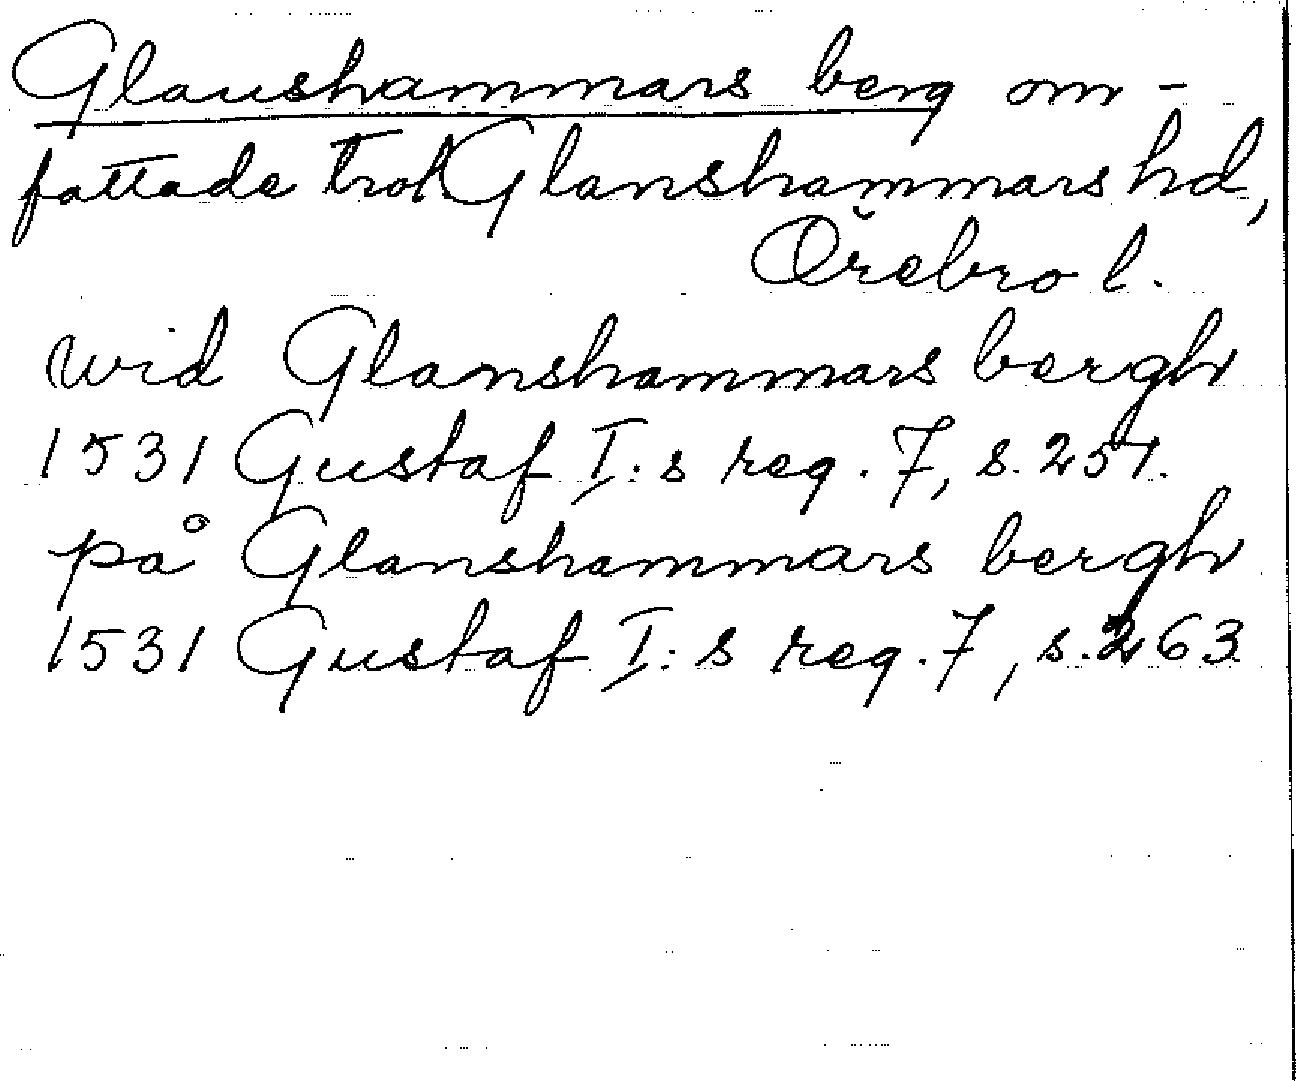 Glanshammars berg om-
fattade trol Glanshammars hd,
Örebro l.
wid Glanshammars bergh
1531 Gustaf I:s reg. 7, s. 257.
på Glanshammars bergh
1531 Gustaf I:s reg. 7, s. 263